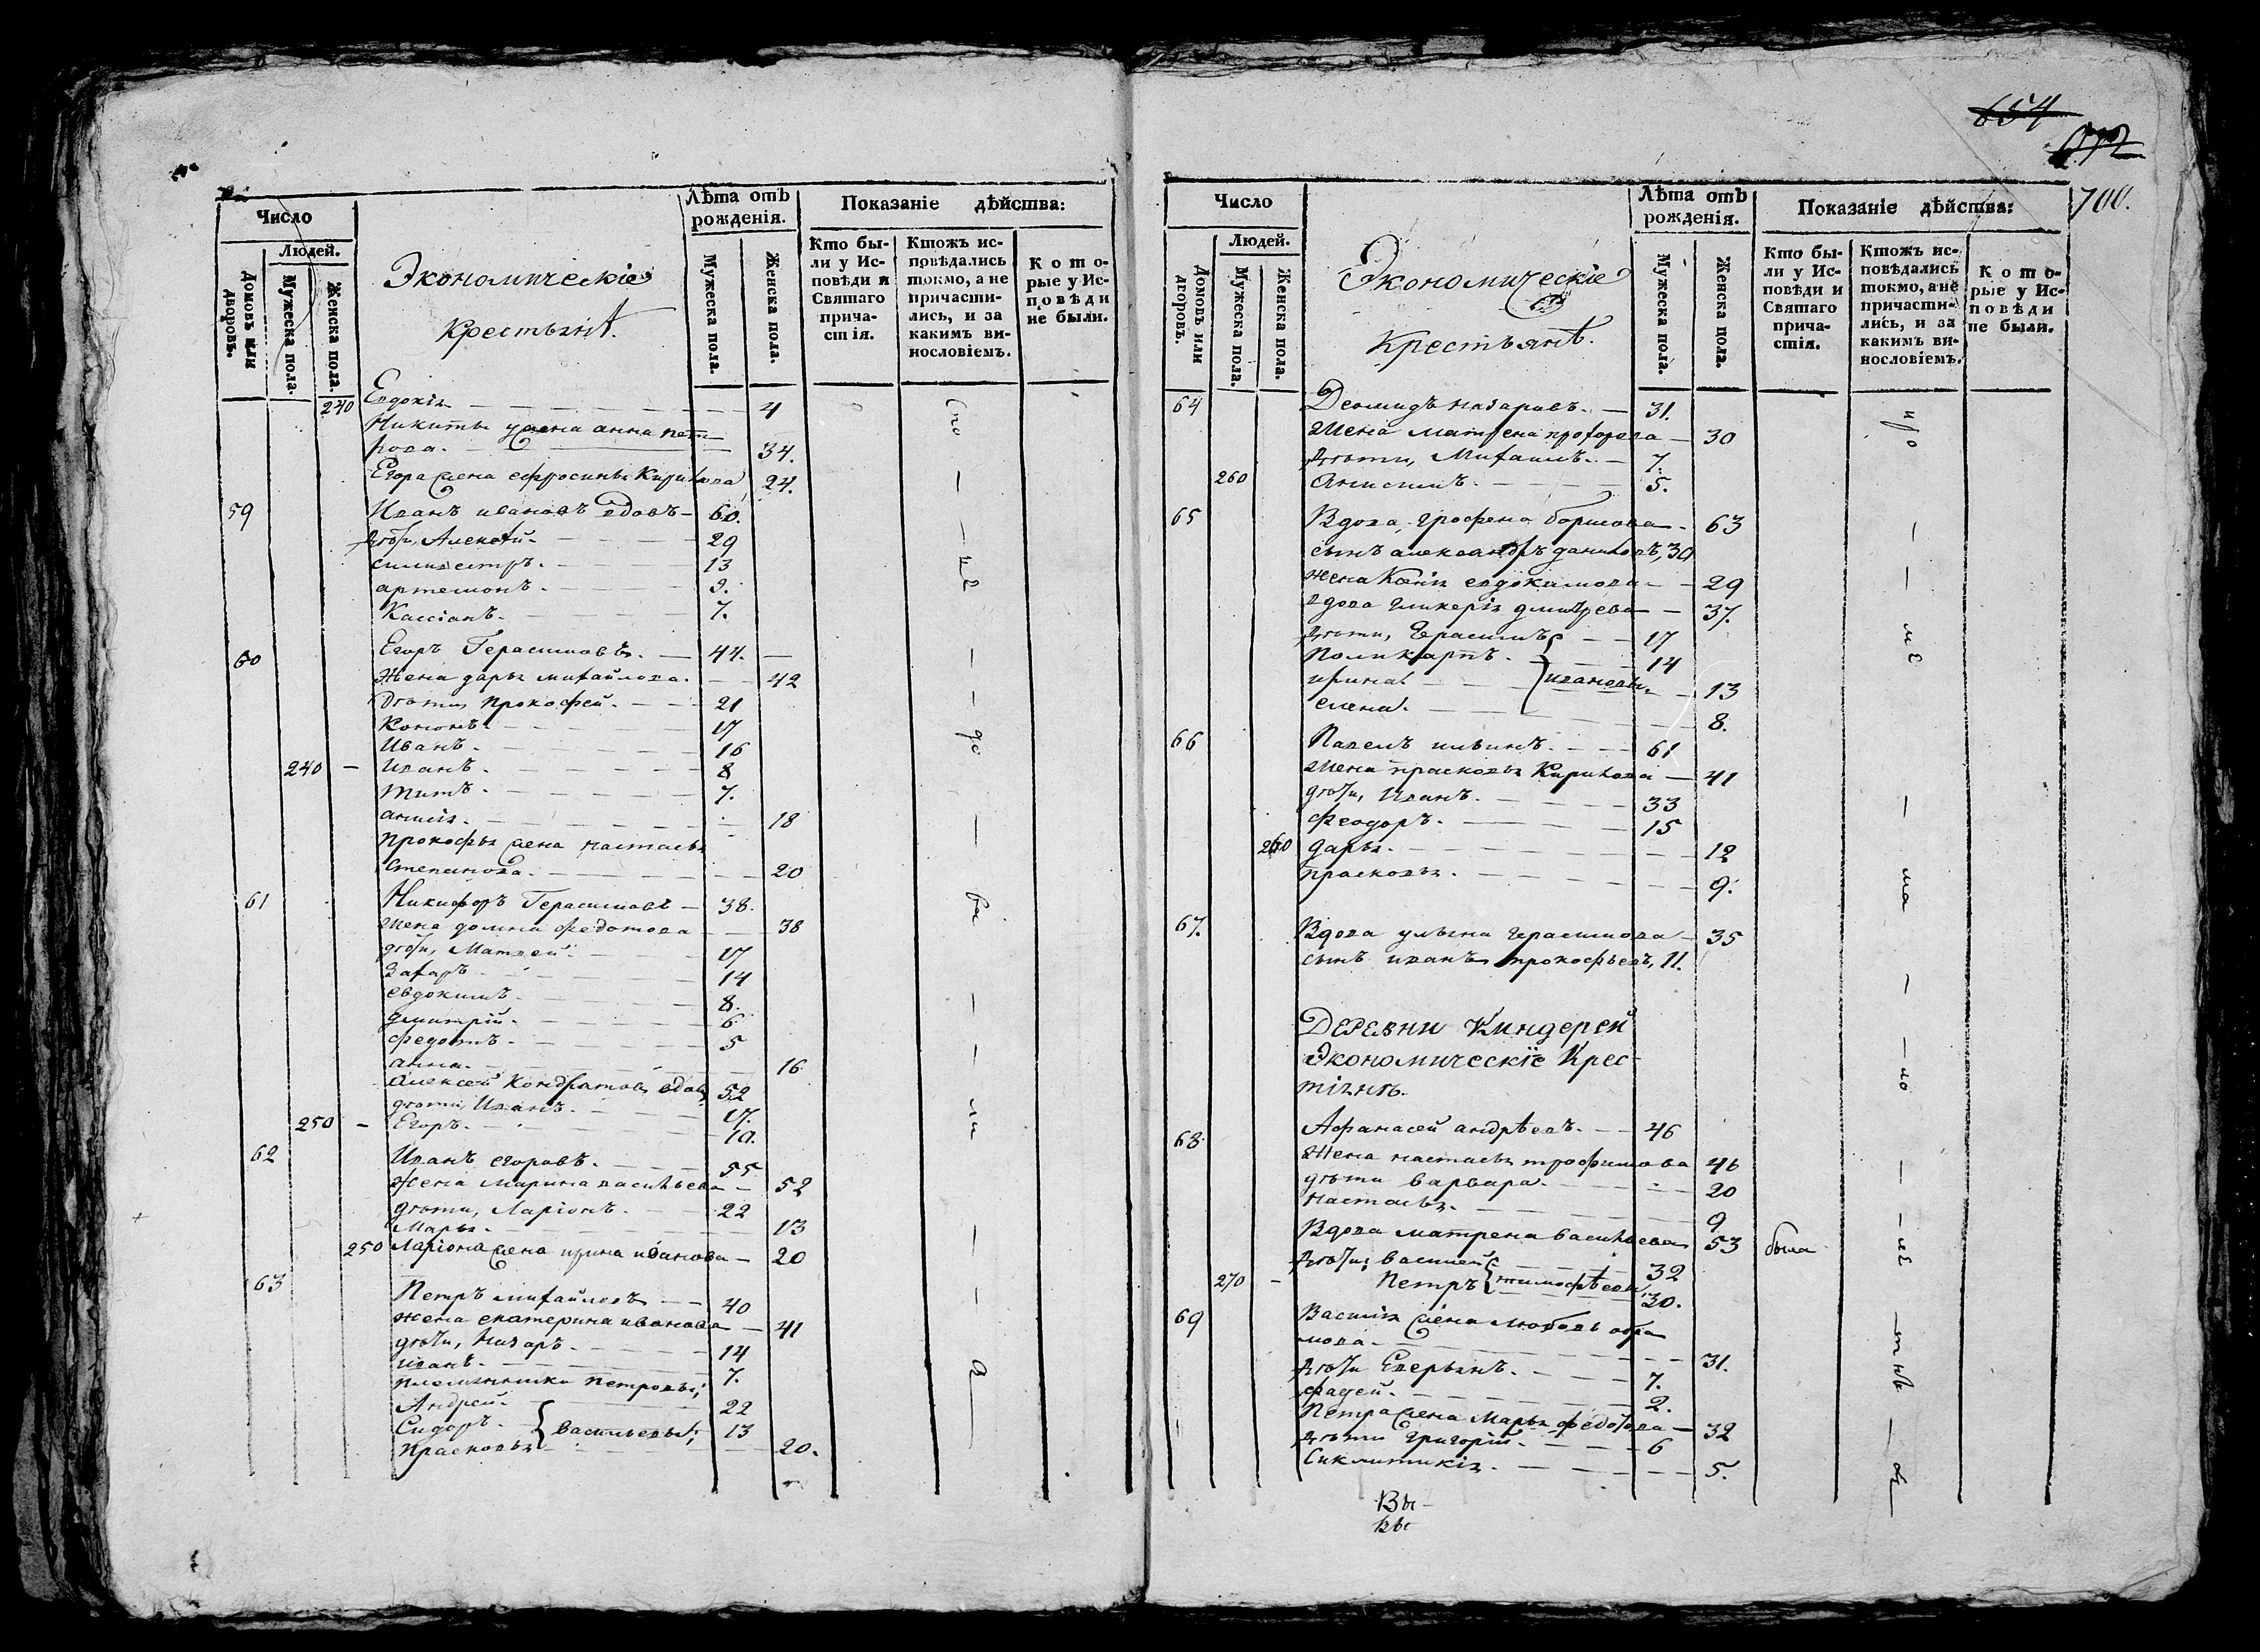 Число
Людей.
Домовъ или дворовъ.
Мужеска пола.
Женска пола.
Экономическіе
Крестьянѣ.
Лѣта отъ рожденія.
Мужеска пола.
Женска пола.
Показаніе дѣйства:
Кто бы-
ли у Ис-
повѣди и
Святаго
прича-
стія.
Ктожъ ис-
повѣдались
токмо, а не
причасти-
лись, и за
какимъ ви-
нословіемъ.
Кото-
рые у Ис-
повѣди
не были.
240 Евдокія 4
Никиты жена анна пет-
рова. 34.
Егора жена ефросинья Кирилова 24.
59 Иванъ ивановъ вдовъ 60.
дѣти, Алексѣй 29
силивестръ 13
артемонъ 9.
Кассіанъ 7.
60 Егоръ Герасимовъ 44.
Жена дарья михайлова 42
Дѣти, Прокофей 21
Кононъ 17
Иванъ 16
240 Иванъ 8
Титъ 7.
18
Прокофья жена настасья
Степанова 20
61 Никифоръ Герасимовъ 38.
Жена домна федотова 38
дѣти, Матвей 17
Захаръ 14
евдокимъ 8.
дмитрій 6
федотъ 5
анна 16
Алексей Кондратовъ вдовъ 52
дѣти, Иванъ 17.
250 Егоръ 10.
62 Иванъ егоровъ 55
Жена Марина васильева 52
дѣти, Ларіонъ 22
Марья 13
250 Ларіона жена ирина иванова 20
63 Петръ михайловъ 40
Жена екатерина иванова 41
дѣти, Назаръ 14
иванъ 7.
племянники Петровы;
Андрей 22
Сидоръ 13
васильевы;
Прасковья 20.
654
672
700.
Число
Людей.
Домовъ или дворовъ.
Мужеска пола.
Женска пола.
Экономическіе
Крестьянѣ.
Лѣта отъ рожденія.
Мужеска пола.
Женска пола.
Показаніе дѣйства:
Кто бы-
ли у Ис-
повѣди и
Святаго
прича-
стія.
Ктожъ ис-
повѣдались
токмо, а не
причасти-
лись, и за
какимъ ви-
нословіемъ.
Кото-
рые у Ис-
повѣди
не были.
64 Деомидъ назаровъ 31.
Жена матрена прохорова 30
Дѣти, Михаилъ 7.
260 Анисимъ 5.
65 Вдова, Грофена борисова 63
сынъ александръ даниловъ, 30
жена евдокимова 29
вдова гликерія дмитрева 37.
Дѣти, Герасимъ 17
Поликарпъ 14
ирина 13
ивановы
елена 8.
66 Павелъ ильинъ 61
Жена прасковья Кирилова 41
дѣти, Иванъ 33
Феодоръ 15
260 дарья 12
прасковья 9.
67. Вдова ульяна герасимова 35
сынъ иванъ прокофьевъ, 11.
Деревни Киндерей
Экономическіе Крес-
тіянѣ.
68 Афанасей андрѣевъ 46
Жена настасья трофимова 46
дѣти варвара 20
настасья 9
Вдова матрена васильева 53 была
дѣти, василей 32
270 Петръ тимофѣевы 30.
69 Василія жена любовь абра
мова 31.
дѣти Еверьянъ 7.
фадей 2.
Петра жена Марья федотова 32
дѣти Григорій 6
Сиклитикія 5.
Вы
вы